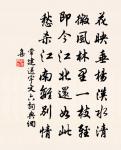 花映垂楊漢水清
微風林里一枝輕
即今江北還如此
愁殺江南離別情
常建送宇文六詞典網